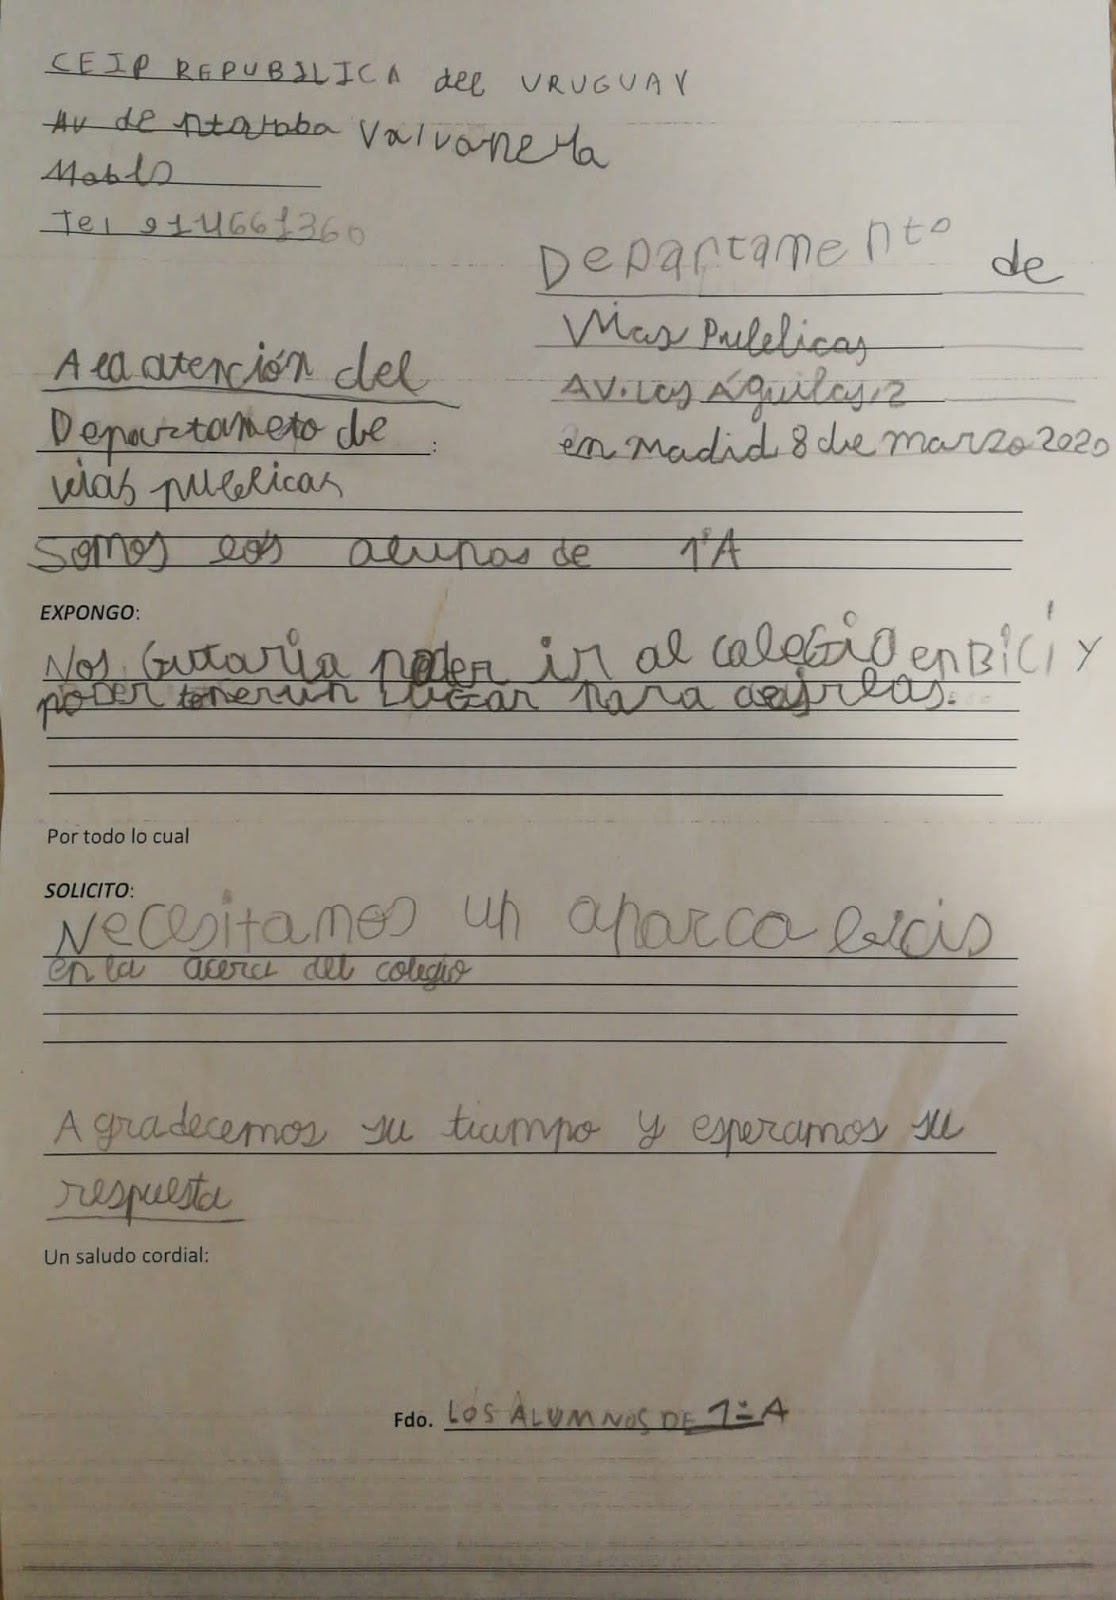 CEIP REPUBILICA del URUGUAY
Av de Valvanera
Tel 914661360
Departamento de
Vias Publicas
AV. Las Águilas, 2
en Madid 8 de marzo 2020
A la atención del
Departameto de :
vias publicas
Somos los alunos de 1ºA
EXPONGO:
Nos Gutaria poder ir al colegio en BICI y
poder tener un lugar para dejrlas.
Por todo lo cual
SOLICITO:
Necesitamos un aparca bicis
en la acera del colegio
Agradecemos su tiempo y esperamos su
respuesta
Un saludo cordial:
Fdo. LOS ALUMNOS DE 1º A